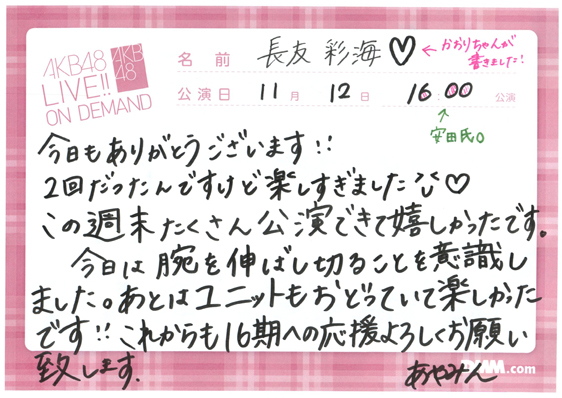 AKB48
LIVE!!
ON DEMAND
AKB
48
名前 長友 彩海♡ ←かおりちゃんが
書きました!
公演日 11月 12日 16:00 公演
↑
安田氏
今日もありがとうございます!!
2回だったんですけど楽しすぎました♡
この週末たくさん公演できて嬉しかったです。
今日は腕を伸ばし切ることを意識し
ました。あとはユニットもおどっていて楽しかった
です!!これからも16期への応援よろしくお願い
致します.
あやみん
DMM.com